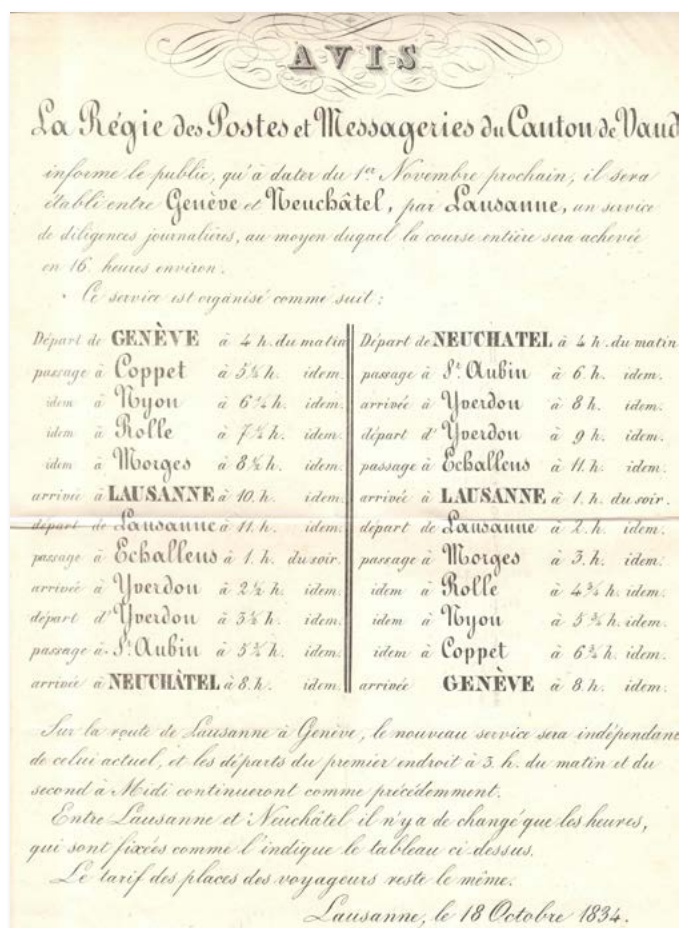 AVIS
La Régie des Postes et Messageries du Canton de Vaud
informe le public, qu'à dater du 1er Novembre prochain, il sera
établi entre Genève et Neuchâtel, par Lausanne, un service
de diligences journalières, au moyen duquel la course entière sera achevée
en 16 heures environ.
Ce service est organisé comme suit :
Départ de GENÈVE à 4 h. du matin
passage à Coppet à 5½ h. idem.
idem à Nyon à h. idem.
idem à Rolle à 7½ h. idem.
idem à Morges à 8½ h. idem.
arrivée à LAUSANNE à 10. h. idem.
départ de Lausanne à 11. h. idem.
passage à Echallens à 1. h. du soir.
arrivée à Yverdon à 2½ h. idem.
départ d'Yverdon à 3½ h. idem.
passage à St. Aubin à h. idem.
arrivée à NEUCHÂTEL à 8. h. idem.
Départ de NEUCHATEL à 4 h. du matin
passage à St. Aubin à 6. h. idem.
arrivée à Yverdon à 8 h. idem.
départ d'Yverdon à 9 h. idem.
passage à Echallens à 11. h. idem.
arrivée à LAUSANNE à 1. h. du soir.
départ de Lausanne à 2. h. idem.
passage à Morges à 3. h. idem.
idem à Rolle à 4¾ h. idem.
idem à Nyon à 5¾ h. idem.
idem à Coppet à 6¾ h. idem.
arrivée GENÈVE à 8. h. idem.
Sur la route de Lausanne à Genève, le nouveau service sera indépendant
de celui actuel, et les départs du premier endroit à 3. h. du matin et du
second à Midi continueront comme précédemment.
Entre Lausanne et Neuchâtel il n'y a de changé que les heures,
qui sont fixées comme l'indique le tableau ci dessus.
Le tarif des places des voyageurs reste le même.
Lausanne, le 18 Octobre 1834.